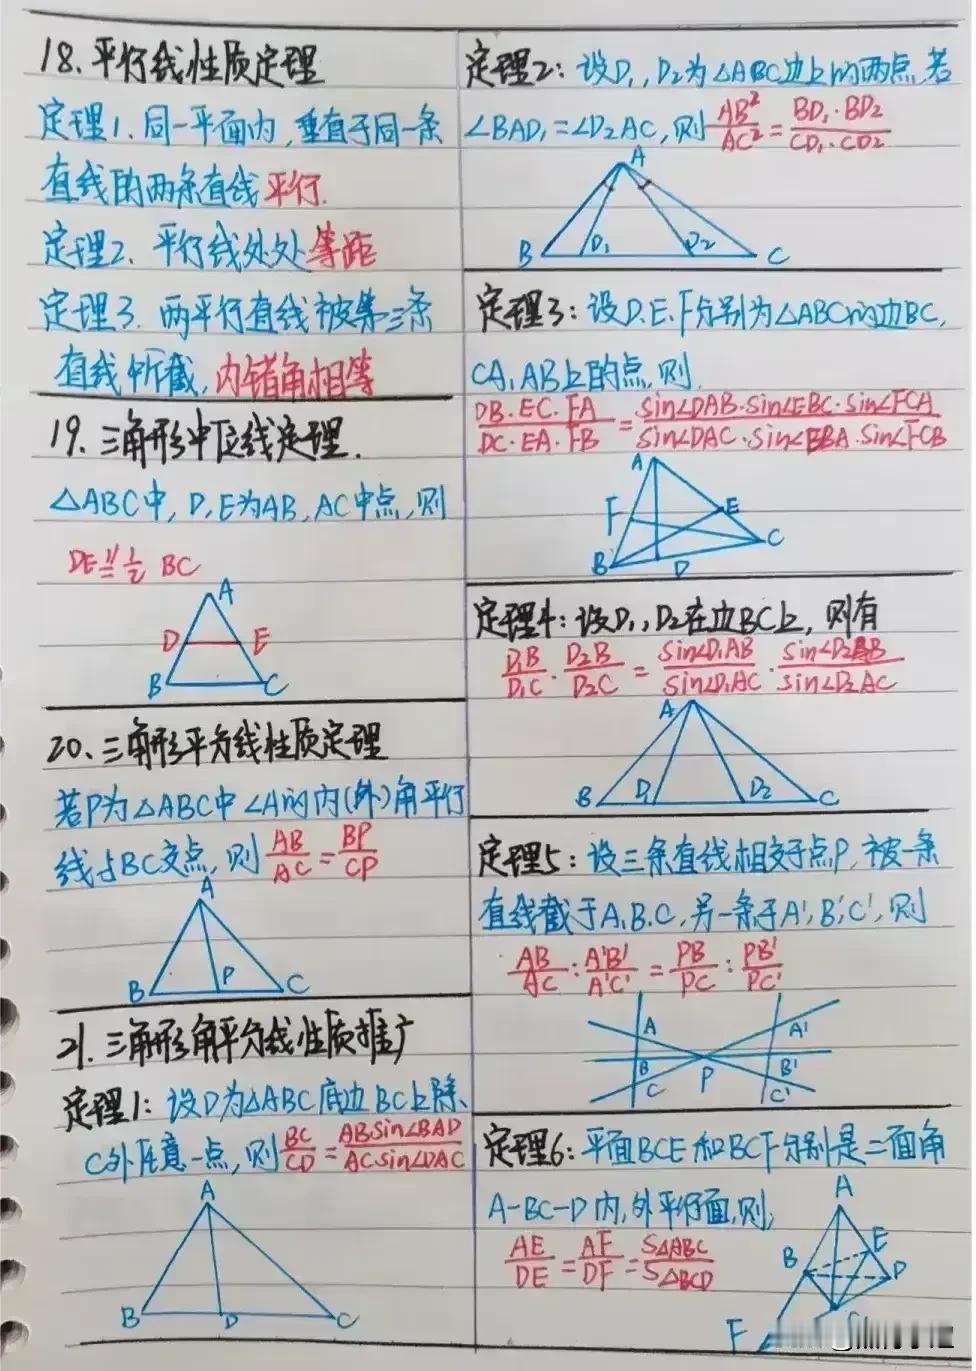 18. 平行线性质定理
定理1. 同一平面内, 垂直于同一条
直线的两条直线平行.
定理2. 平行线处处等距
定理3. 两平行直线被第三条
直线所截, 内错角相等
19. 三角形中位线定理.
△ABC中, D, E为AB, AC中点, 则
DE ∥= 1/2 BC
A
D E
B C
20. 三角形平分线性质定理
若P为△ABC中∠A的内(外)角平行
线与BC交点, 则 AB/AC = BP/CP
A
B P C
21. 三角形角平分线性质推广
定理1: 设D为△ABC底边BC上除
C外任意一点, 则 BC/CD = ABsin∠BAD/ACsin∠DAC
A
B D C
定理2: 设D₁, D₂为△ABC边上的两点, 若
∠BAD₁=∠D₂AC, 则 AB²/AC² = BD₁·BD₂/CD₁·CD₂
A
B D₁ D₂ C
定理3: 设D.E.F分别为△ABC的边BC,
CA, AB上的点, 则.
DB·EC·FA/DC·EA·FB = sin∠DAB·sin∠EBC·sin∠FCA/sin∠DAC·sin∠EBA·sin∠FCB
A
F E
B D C
定理4: 设D₁, D₂在边BC上, 则有
D₁B/D₁C · D₂B/D₂C = sin∠D₁AB/sin∠D₁AC · sin∠D₂AB/sin∠D₂AC
A
B D₁ D₂ C
定理5: 设三条直线相交于点P, 被一条
直线截于A, B, C, 另一条于A', B', C', 则
AB/AC : A'B'/A'C' = PB/PC : PB'/PC'
A A'
B P B'
C C'
定理6: 平面BCE和BCF分别是二面角
A-BC-D内, 外平行面, 则;
AE/DE = AF/DF = S△ABC/S△BCD
A
B E
D
F